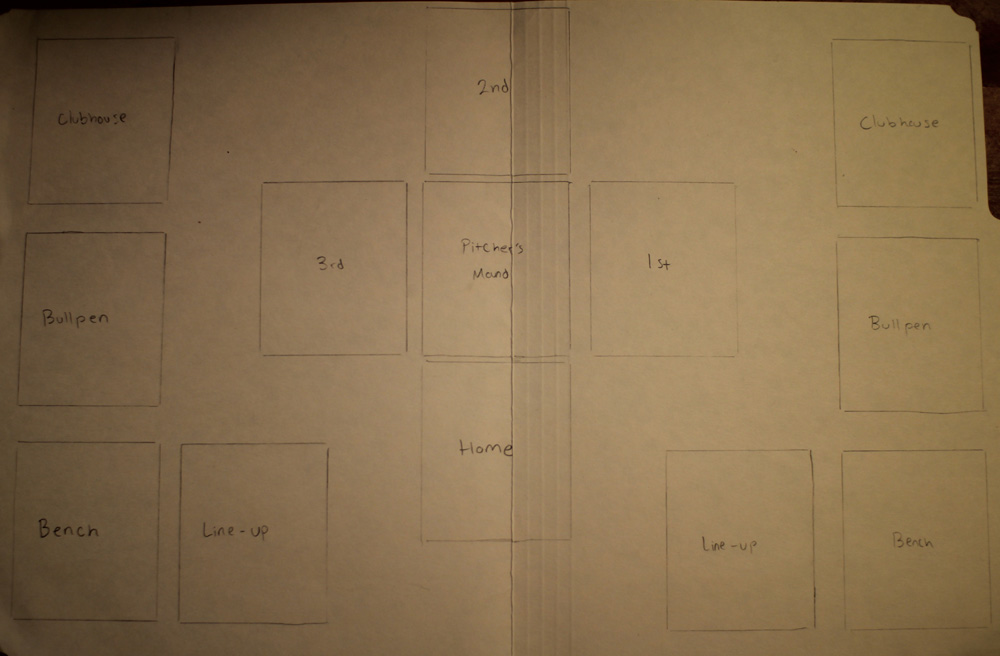 2nd
Clubhouse
Clubhouse
3rd
Pitcher's
Mound
1st
Bullpen
Bullpen
Home
Bench
Line-up
Line-up
Bench